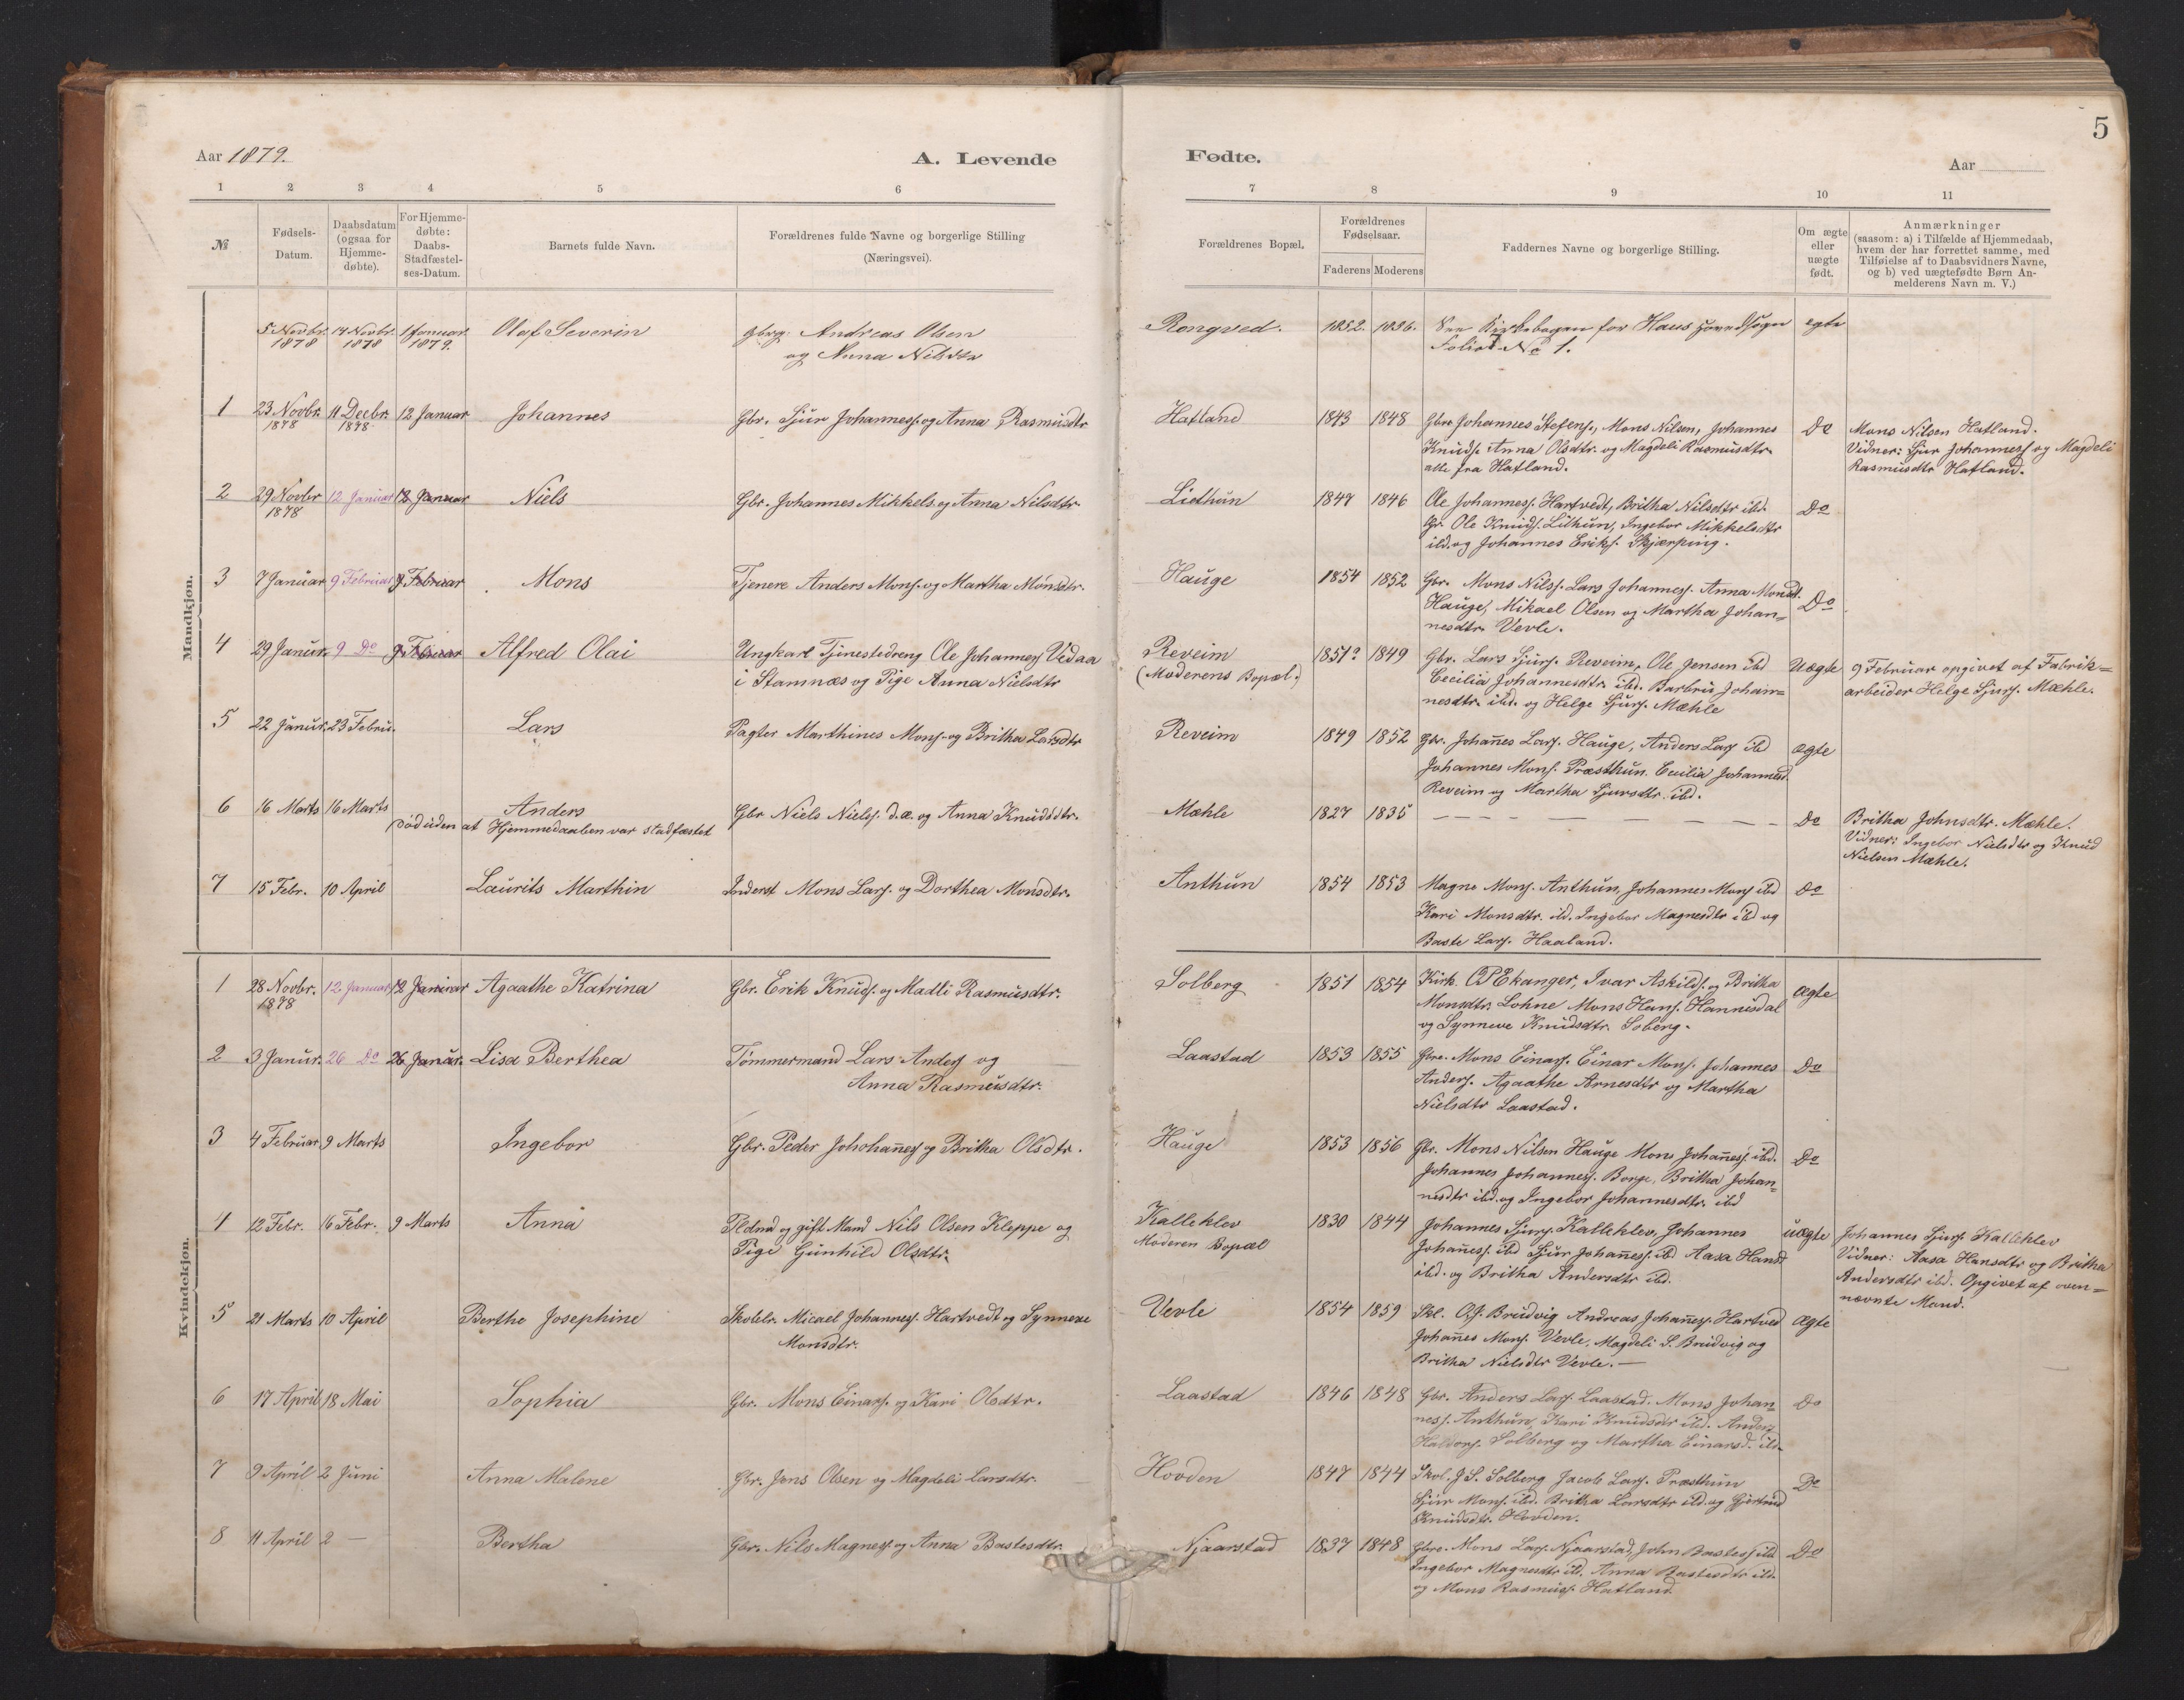 Aar 1879.
A. Levende
1 2 3 4 5 6
№
Fødsels-
Datum.
Daabsdatum
(ogsaa for
Hjemme-
døbte).
For Hjemme-
døbte:
Daabs-
Stadfæstel-
ses-Datum.
Barnets fulde Navn.
Forældrenes fulde Navne og borgerlige Stilling
(Næringsvei).
Mandkjøn.
5 Novbr. 14 Novbr. 1 Januar. Olaf Severin gbrg. Andreas Olsen
1878 1878 1879. og Anna Nilsdtr
1 23 Novbr. 11 Decbr. 12 Januar Johannes Gbr. Sjur Johannes. og Anna Rasmusdtr
1878 1878
2 29 Novbr 12 Januar 12 Januar Niels Gbr. Johannes Mikkels. og Anna Nilsdtr.
1878
3 7 Januar 9 Februar 9 Februar Mons Tjenere Anders Mons. og Martha Monsdtr.
4 29 Januar. 9 Do 9 Februar Alfred Olai Ungkarl Tjinestedreng Ole Johannes Vedaa
i Stamnæs og Pige Anna Nielsdtr
5 22 Januar. 23 Febru. Lars Pagter Marthines Mons. og Britha Larsdtr
6 16 Marts 16 Marts Anders Gbr Niels Niels. d.æ. og Anna Knudsdtr.
Død uden at Hjemmedaaben var stadfæstet
7 15 Febr. 10 April Laurits Marthin Inderst Mons Lars. og Dorthea Monsdtr.
Kvindekjøn.
1 28 Novbr. 12 Januar 12 Januar Agaathe Katrina Gbr. Erik Knuds. og Madli Rasmusdtr.
1878
2 3 Januar. 26 Do 26 Januar. Lisa Berthea Tømmermand Lars Anders og
Anna Rasmusdtr.
3 4 Februar 9 Marts Ingebor Gbr. Peder Johohanes og Britha Olsdtr.
4 12 Febr. 16 Febr. 9 Marts Anna og gift Mand Nils Olsen Kleppe og
Pige Gunhild Olsdtr.
5 21 Marts 10 April Berthe Josephine Skolelr. Micael Johannes. Hartvedt og Synneve
Monsdtr.
6 17 April 18 Mai Sophia Gbr. Mons Einars. og Kari Olsdtr.
7 9 April 2 Juni Anna Malene Gbr. Jens Olsen og Magdeli Larsdtr.
8 11 April 2 — Bertha Gbr. Nils Magnes. og Anna Bastesdtr.
5
Fødte.
Aar
7 8 9 10 11
Forældrenes Bopæl.
Forældrenes
Fødselsaar.
Faderens Moderens
Faddernes Navne og borgerlige Stilling.
Om ægte
eller
uægte
født.
Anmærkninger
(saasom: a) i Tilfælde af Hjemmedaab,
hvem der har forrettet samme, med
Tilføielse af to Daabsvidners Navne,
og b) ved uægtefødte Børn An-
melderens Navn m. V.)
Rongved. 1852. 1836. See Kirkebogen for Haus Hovedsogn egte
Folio No 1.
Hatland 1843 1848 Gbre Johannes Stefens., Mons Nilsen, Johannes Do Mons Nilsen Hatland.
Knuds. Anna Olsdtr. og Magdeli Rasmusdtr. Vidner: Sjur Johannes og Magdeli
alle fra Hatland. Rasmusdtr Hatland.
Liethun 1847 1846 Ole Johannes. Hartvedt, Britha Nilsdtr ibd. Do
Gr. Ole Knuds. Lithun, Ingebor Mikkelsdtr
ibd. og Johannes Eriks. Skjærping.
Hauge 1854 1852 Gbr. Mons Nils. Lars Johannes. Anna Monsd. Do
Hauge, Mikael Olsen og Martha Johan=
nesdtr Vevle.
Reveim 1851? 1849 Gbr. Lars Sjurs. Reveim, Ole Jensen ibd Uægte 9 Februar opgivet af Fabrik=
(Moderens Bopæl.) Cecilia Johannesdtr. ibd. Barbru Johan= arbeider Helge Sjurs. Mæhle.
nesdtr. ibd. og Helge Sjurs. Mæhle
Reveim 1849 1852 Gbr. Johanes Lars. Hauge, Anders Lars ibd ægte
Johannes Mons. Præsthun. Cecilia Johannesd.
Reveim og Martha Sjursdtr. ibd.
Mæhle 1827 1835 — — — — — — Do Britha Johnsdtr. Mæhle.
Vidner: Ingebor Nielsdtr og Knud
Nielsen Mæhle.
Anthun 1854 1853 Magne Mons. Anthun, Johannes Mons ibd Do
Kari Monsdtr. ibd. Ingebor Magnesdtr ibd og
Baste Lars. Haaland.
Solberg 1851 1854 Kirk. O P Ekanger, Ivar Askilds. og Britha Ægte
Monsdtr. Lohne Mons Hans. Hannisdal
og Synneve Knudsdtr. Soberg.
Laastad 1853 1855 Gbre. Mons Einars. Einar Mons. Johannes Do
Anders. Agaathe Arnesdtr og Martha
Nielsdtr Laastad.
Hauge 1853 1856 Gbr. Mons Nilsen Hauge Mons Johanes. ibd. Do
Johannes Johannes. Borge, Britha Johan=
nesdtr ibd. og Ingebor Johannesdtr. ibd
Kalleklev 1830 1844 Johannes Sjurs. Kalleklev, Johannes uægte Johannes Sjurs. Kalleklev
Moderen Bopæl Johanes. ibd Sjur Johanes. ibd Aasa Hansd. Vidner: Aasa Hansdtr og Britha
ibd. og Britha Andersdtr ibd. Andersdtr ibd. Opgivet af oven=
nævnte Mand.
Vevle 1854 1859 Skl. O.J. Brudvig Andreas Johanes. Hartved Ægte
Johanes Mons. Vevle, Magdeli S. Brudvig og
Britha Nielsdtr Vevle. —
Laastad 1846 1848 Gbr. Anders Lars. Laastad. Mons Johan= Do
nes. Anthun, Kari Knudsdtr ibd. Anders
Haldors. Solberg og Martha Einarsd. ibd.
Hovden 1847 1844 Skol. J S. Solberg Jacob Lars. Præsthun Do
Sjur Mons. ibd. Britha Larsdtr ibd. og Gjertrud
Knudsdtr. Hovden.
Njaarstad 1837 1848 Gbre. Mons Lars. Njaarstad, John Bastes. ibd Do
Ingebor Magnesdtr ibd. Anna Bastesdtr ibd.
og Mons Rasmus. Hatland.